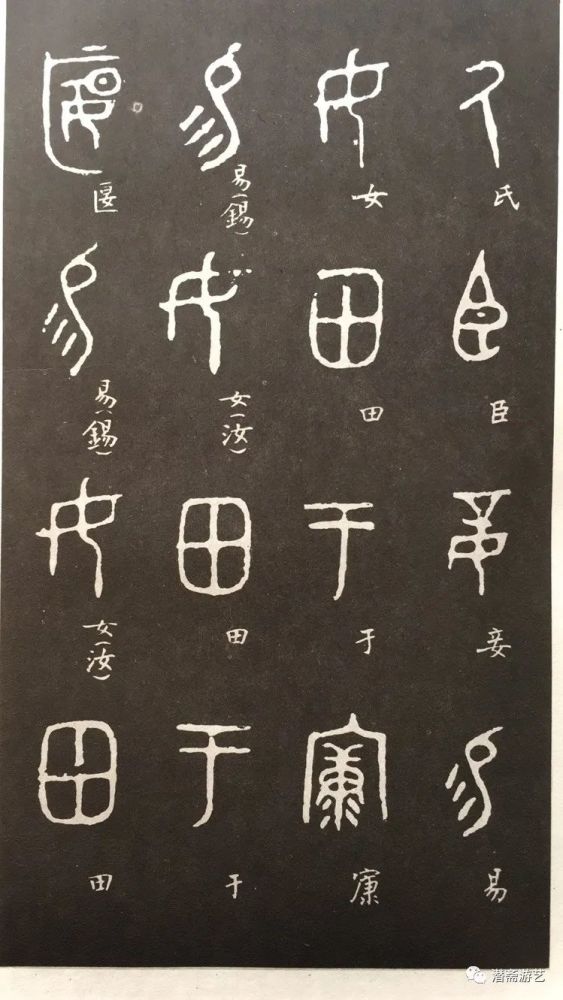 氏臣妾易
女田于㝩
易(錫)女(汝)田于
匽易(錫)女(汝)田
潜斋游艺